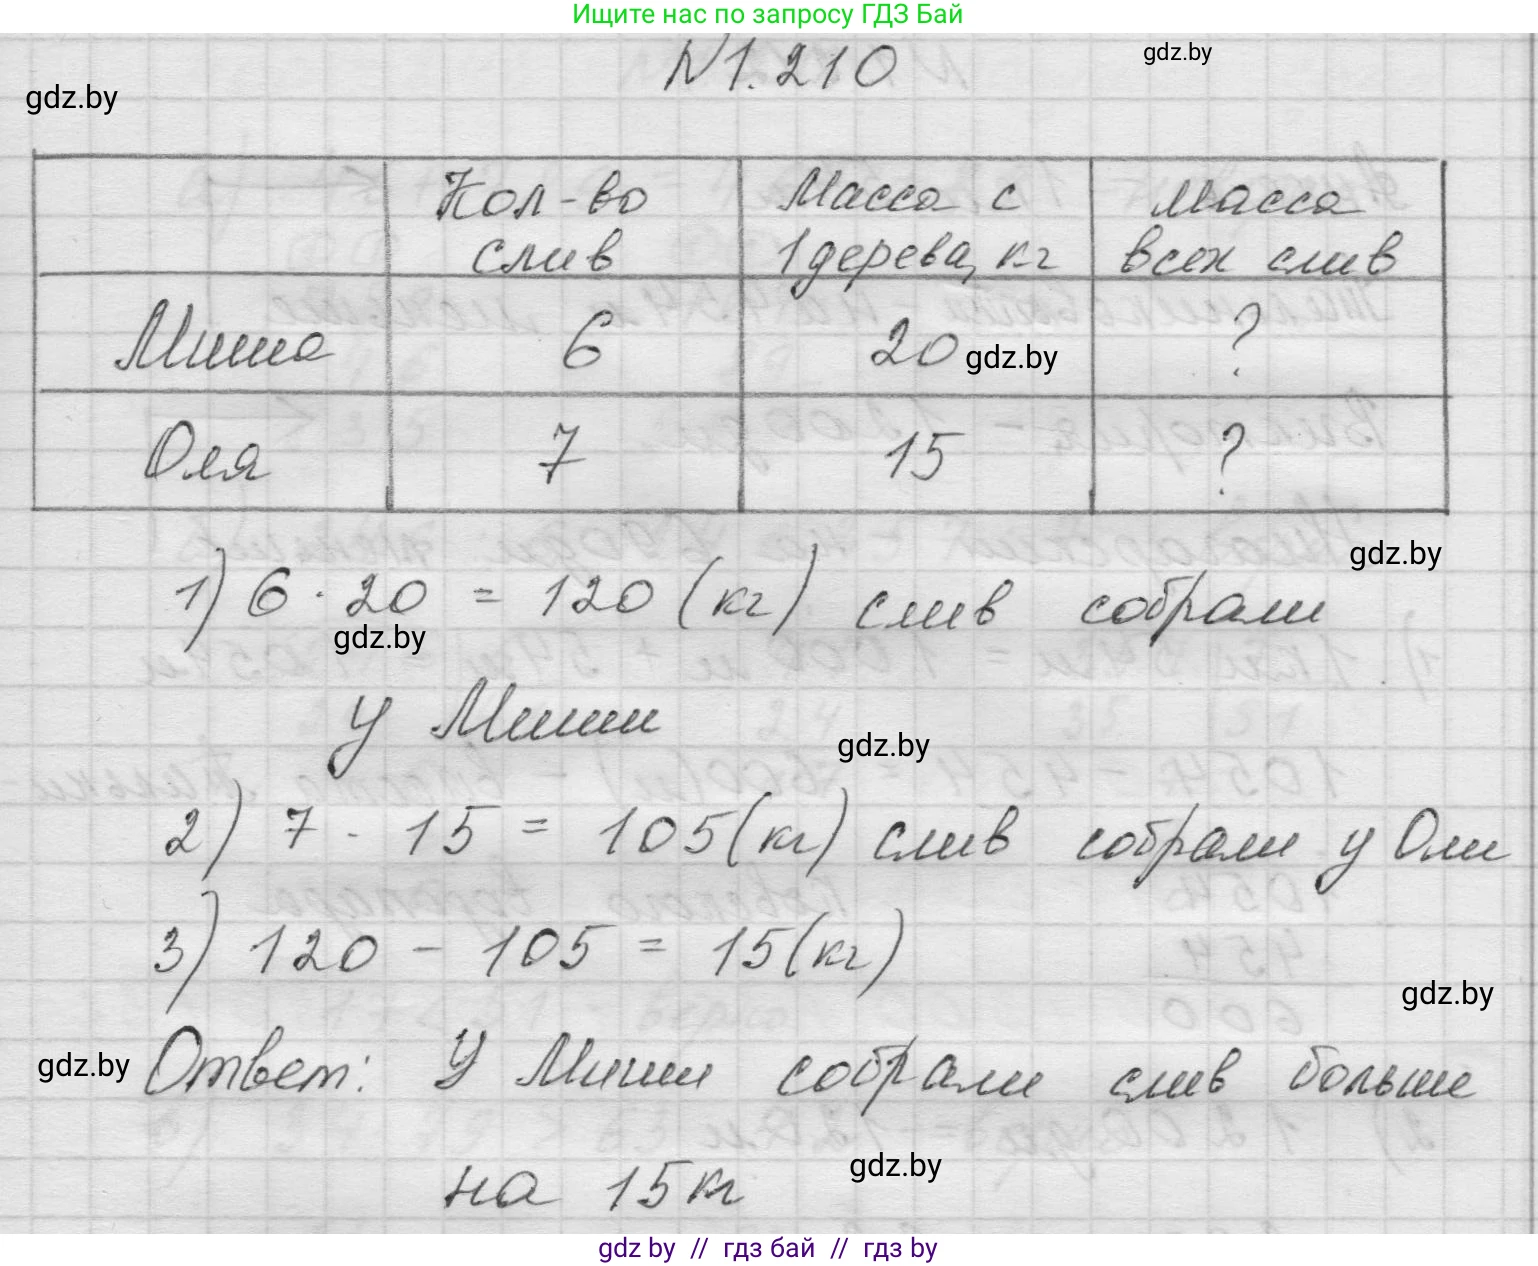 Ищите нас по запросу ГДЗ Бай
№1.210
gdz.by
gdz.by
Кол-во слив
Масса с 1 дерева, кг
Масса всех слив
Миша 6 20 ?
gdz.by
Оля 7 15 ?
gdz.by
1) 6 · 20 = 120 (кг) слив собрали
gdz.by
у Миши
gdz.by
2) 7 · 15 = 105 (кг) слив собрали у Оли
3) 120 - 105 = 15 (кг)
gdz.by
gdz.by
Ответ: У Миши собрали слив больше
gdz.by
на 15 кг
gdz by // гдз бай // гдз by